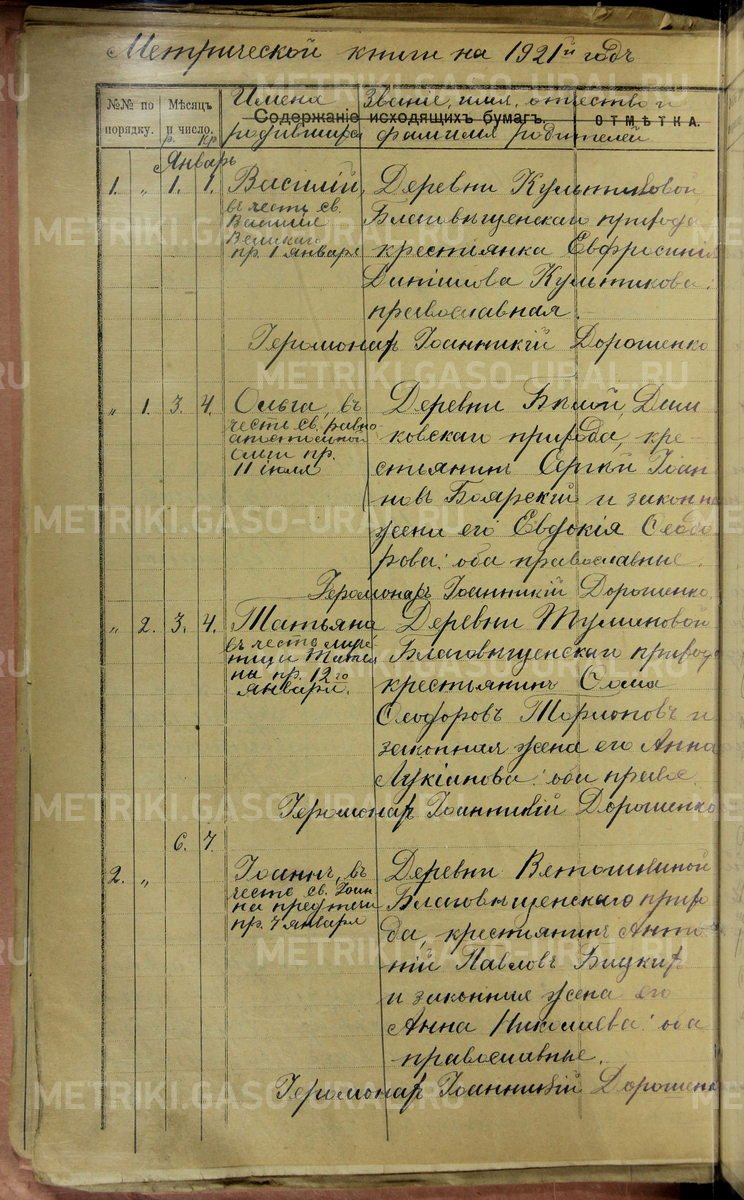 Метрической книги на 1921й годъ
№№ по порядку.
Мѣсяцъ и число.
р. кр.
Имена родившихся
Званіе, имя, отчество и фамилія родителей
Содержаніе исходящихъ бумагъ.
ОТМѢТКА.
Январь
1. „ 1. 1.
Василій,
въ честь св.
Василія
Великаго
пр. 1 января
Деревни Культиковой
Благовѣщенскаго прихода
крестьянка Евфросинія
Данилова Культикова:
православная.
Іеромонах Іоанникій Дорошенко
„ 1. 3. 4.
Ольга, въ
честь св. равно
апостольной
Ольги пр.
11 іюля
Деревни Бѣлой,
прихода, кре-
стьянинъ Сергій Іоан
новъ Боярскій и законна
жена его Евдокія Ѳеодо
рова: оба православные.
Іеромонахъ Іоанникій Дорошенко
„ 2. 3. 4.
Татьяна
въ честь муче
ницы Татья
ны пр. 12го
января.
Деревни
Благовѣщенскаго прихода
крестьянинъ Ѳома
Ѳеодоровъ и
законная жена его Анна
Лукіанова: оба правос
Іеромонах Іоанникій Дорошенко
6. 7.
2. „
Іоаннъ, въ
честь св. Іоан
на предтечи
пр. 7 января
Деревни Ветошкиной
Благовѣщенскаго прихо
да, крестьянинъ Анто
ній Павловъ
и законная жена его
Анна Николаева: оба
православные.
Іеромонах Іоанникій Дорошенк
METRIKI.GASO-URAL.RU